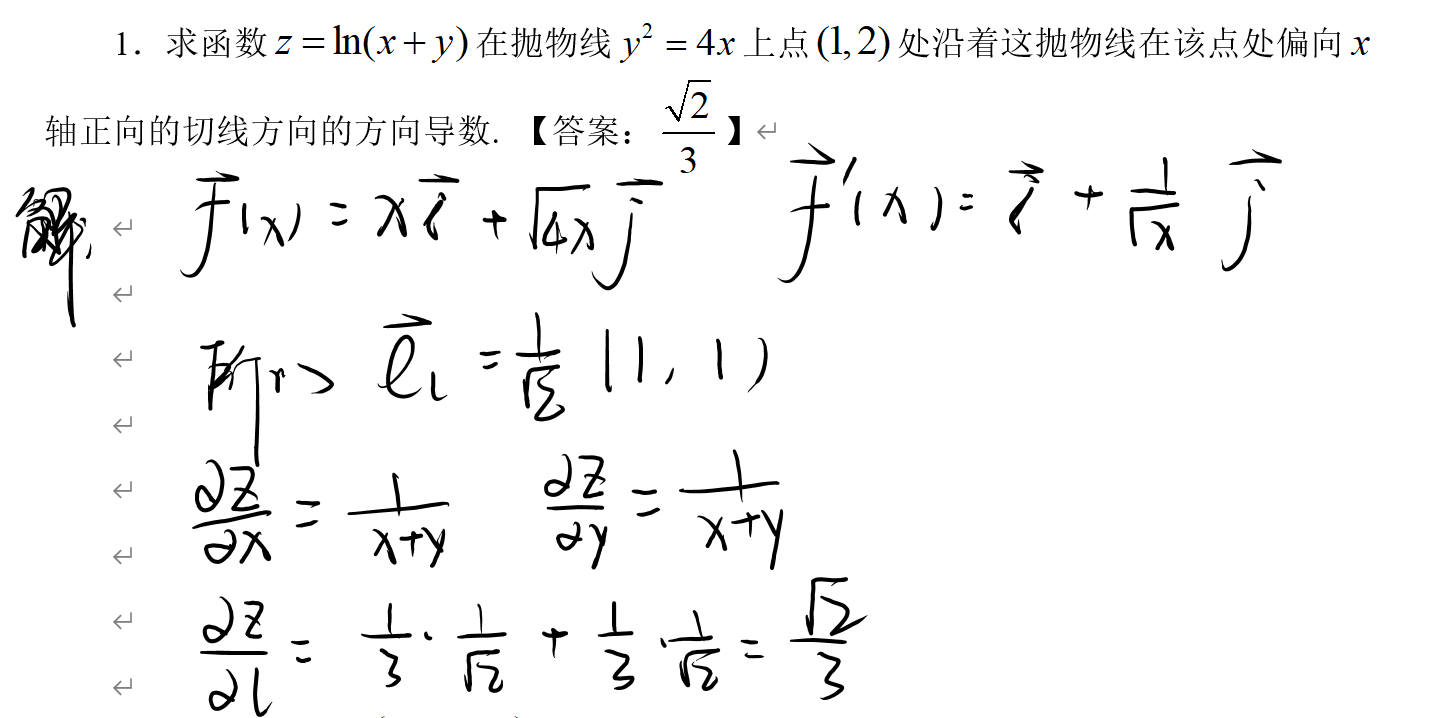 1. 求函数 z = ln(x + y) 在抛物线 y² = 4x 上点 (1, 2) 处沿着这抛物线在该点处偏向 x
轴正向的切线方向的方向导数. 【答案: √2/3 】↵
解: f⃗(x) = x i⃗ + √(4x) j⃗  f⃗′(x) = i⃗ + 1/√x j⃗
所以 e⃗ₗ = 1/√2 (1, 1)
∂z/∂x = 1/(x+y)  ∂z/∂y = 1/(x+y)
∂z/∂l = 1/3 · 1/√2 + 1/3 · 1/√2 = √2/3